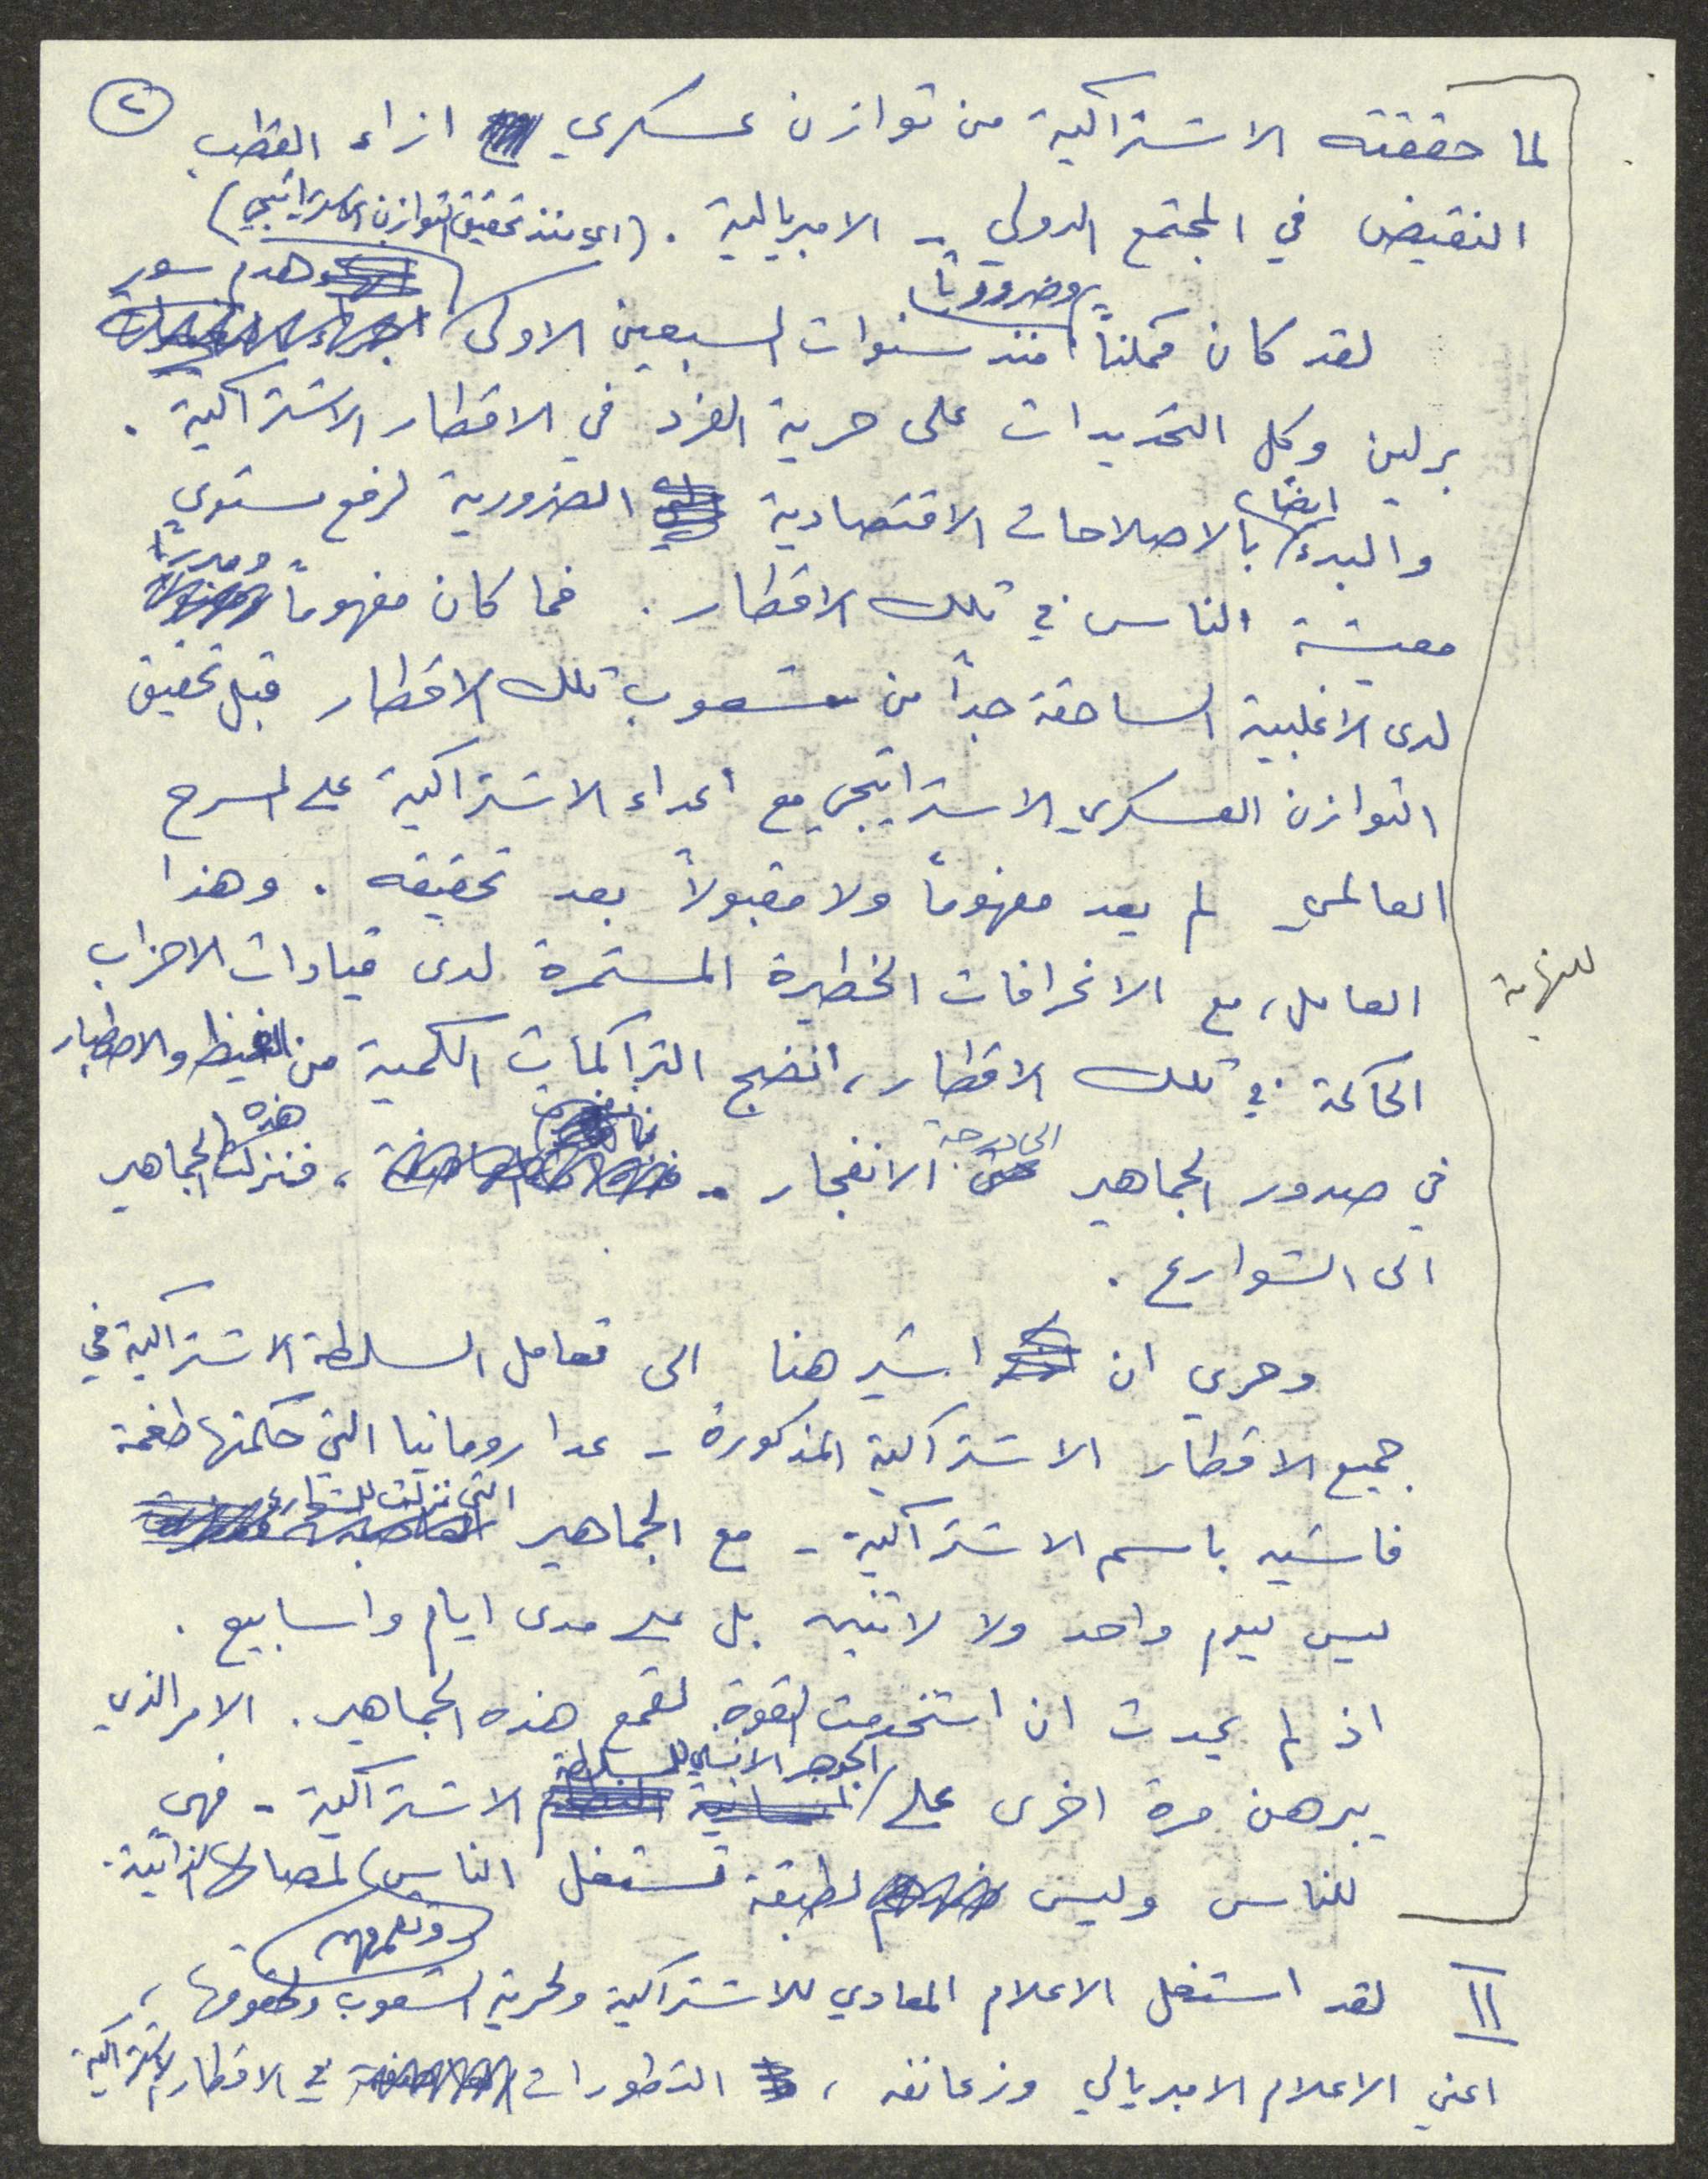 ٢
لما حققته الاشتراكية من توازن عسكري ازاء القطب
النقيض في المجتمع الدولي - الامبريالية . (اي منذ تحقيق التوازن الاستراتيجي)
لقد كان ممكناً وضرورياً منذ سنوات السبعين الاولى هدم سور
برلين وكل التحديدات على حرية الفرد في الاقطار الاشتراكية .
والبدء ايضاً بالاصلاحات الاقتصادية الضرورية لرفع مستوى
معيشة الناس في تلك الاقطار . فما كان مفهوماً ومبرراً
لدى الاغلبية الساحقة جداً من شعوب تلك الاقطار قبل تحقيق
التوازن العسكري الاستراتيجي مع اعداء الاشتراكية على المسرح
العالمي لم يعد مفهوماً ولا مقبولاً بعد تحقيقه . وهذا
العامل، مع الانحرافات الخطيرة المستمرة لدى قيادات الاحزاب
للنهاية
الحاكمة في تلك الاقطار، انضج التراكمات الكمية من الغيظ والاصطبار
في صدور الجماهير الى درجة الانفجار - ، فنزلت هذه الجماهير
الى الشوارع .
وحري ان اشير هنا الى تعامل السلطة الاشتراكية في
جميع الاقطار الاشتراكية المذكورة - عدا رومانيا التي حكمتها طغمة
فاشيه باسم الاشتراكية - مع الجماهير التي نزلت للشوارع
ليس ليوم واحد ولا لاثنين بل على مدى ايام واسابيع .
اذ لم يحدث ان استخدمت القوة لقمع هذه الجماهير . الامر الذي
يبرهن مرة اخرى على الجوهر الانساني للسلطة الاشتراكية - فهي
للناس وليس لطبقة تستغل الناس لمصالحها الذاتية .
II لقد استغل الاعلام المعادي للاشتراكية ولحرية الشعوب وحقوقها ،
اعني الاعلام الامبريالي وزعانفه ، التطورات في الاقطار الاشتراكية